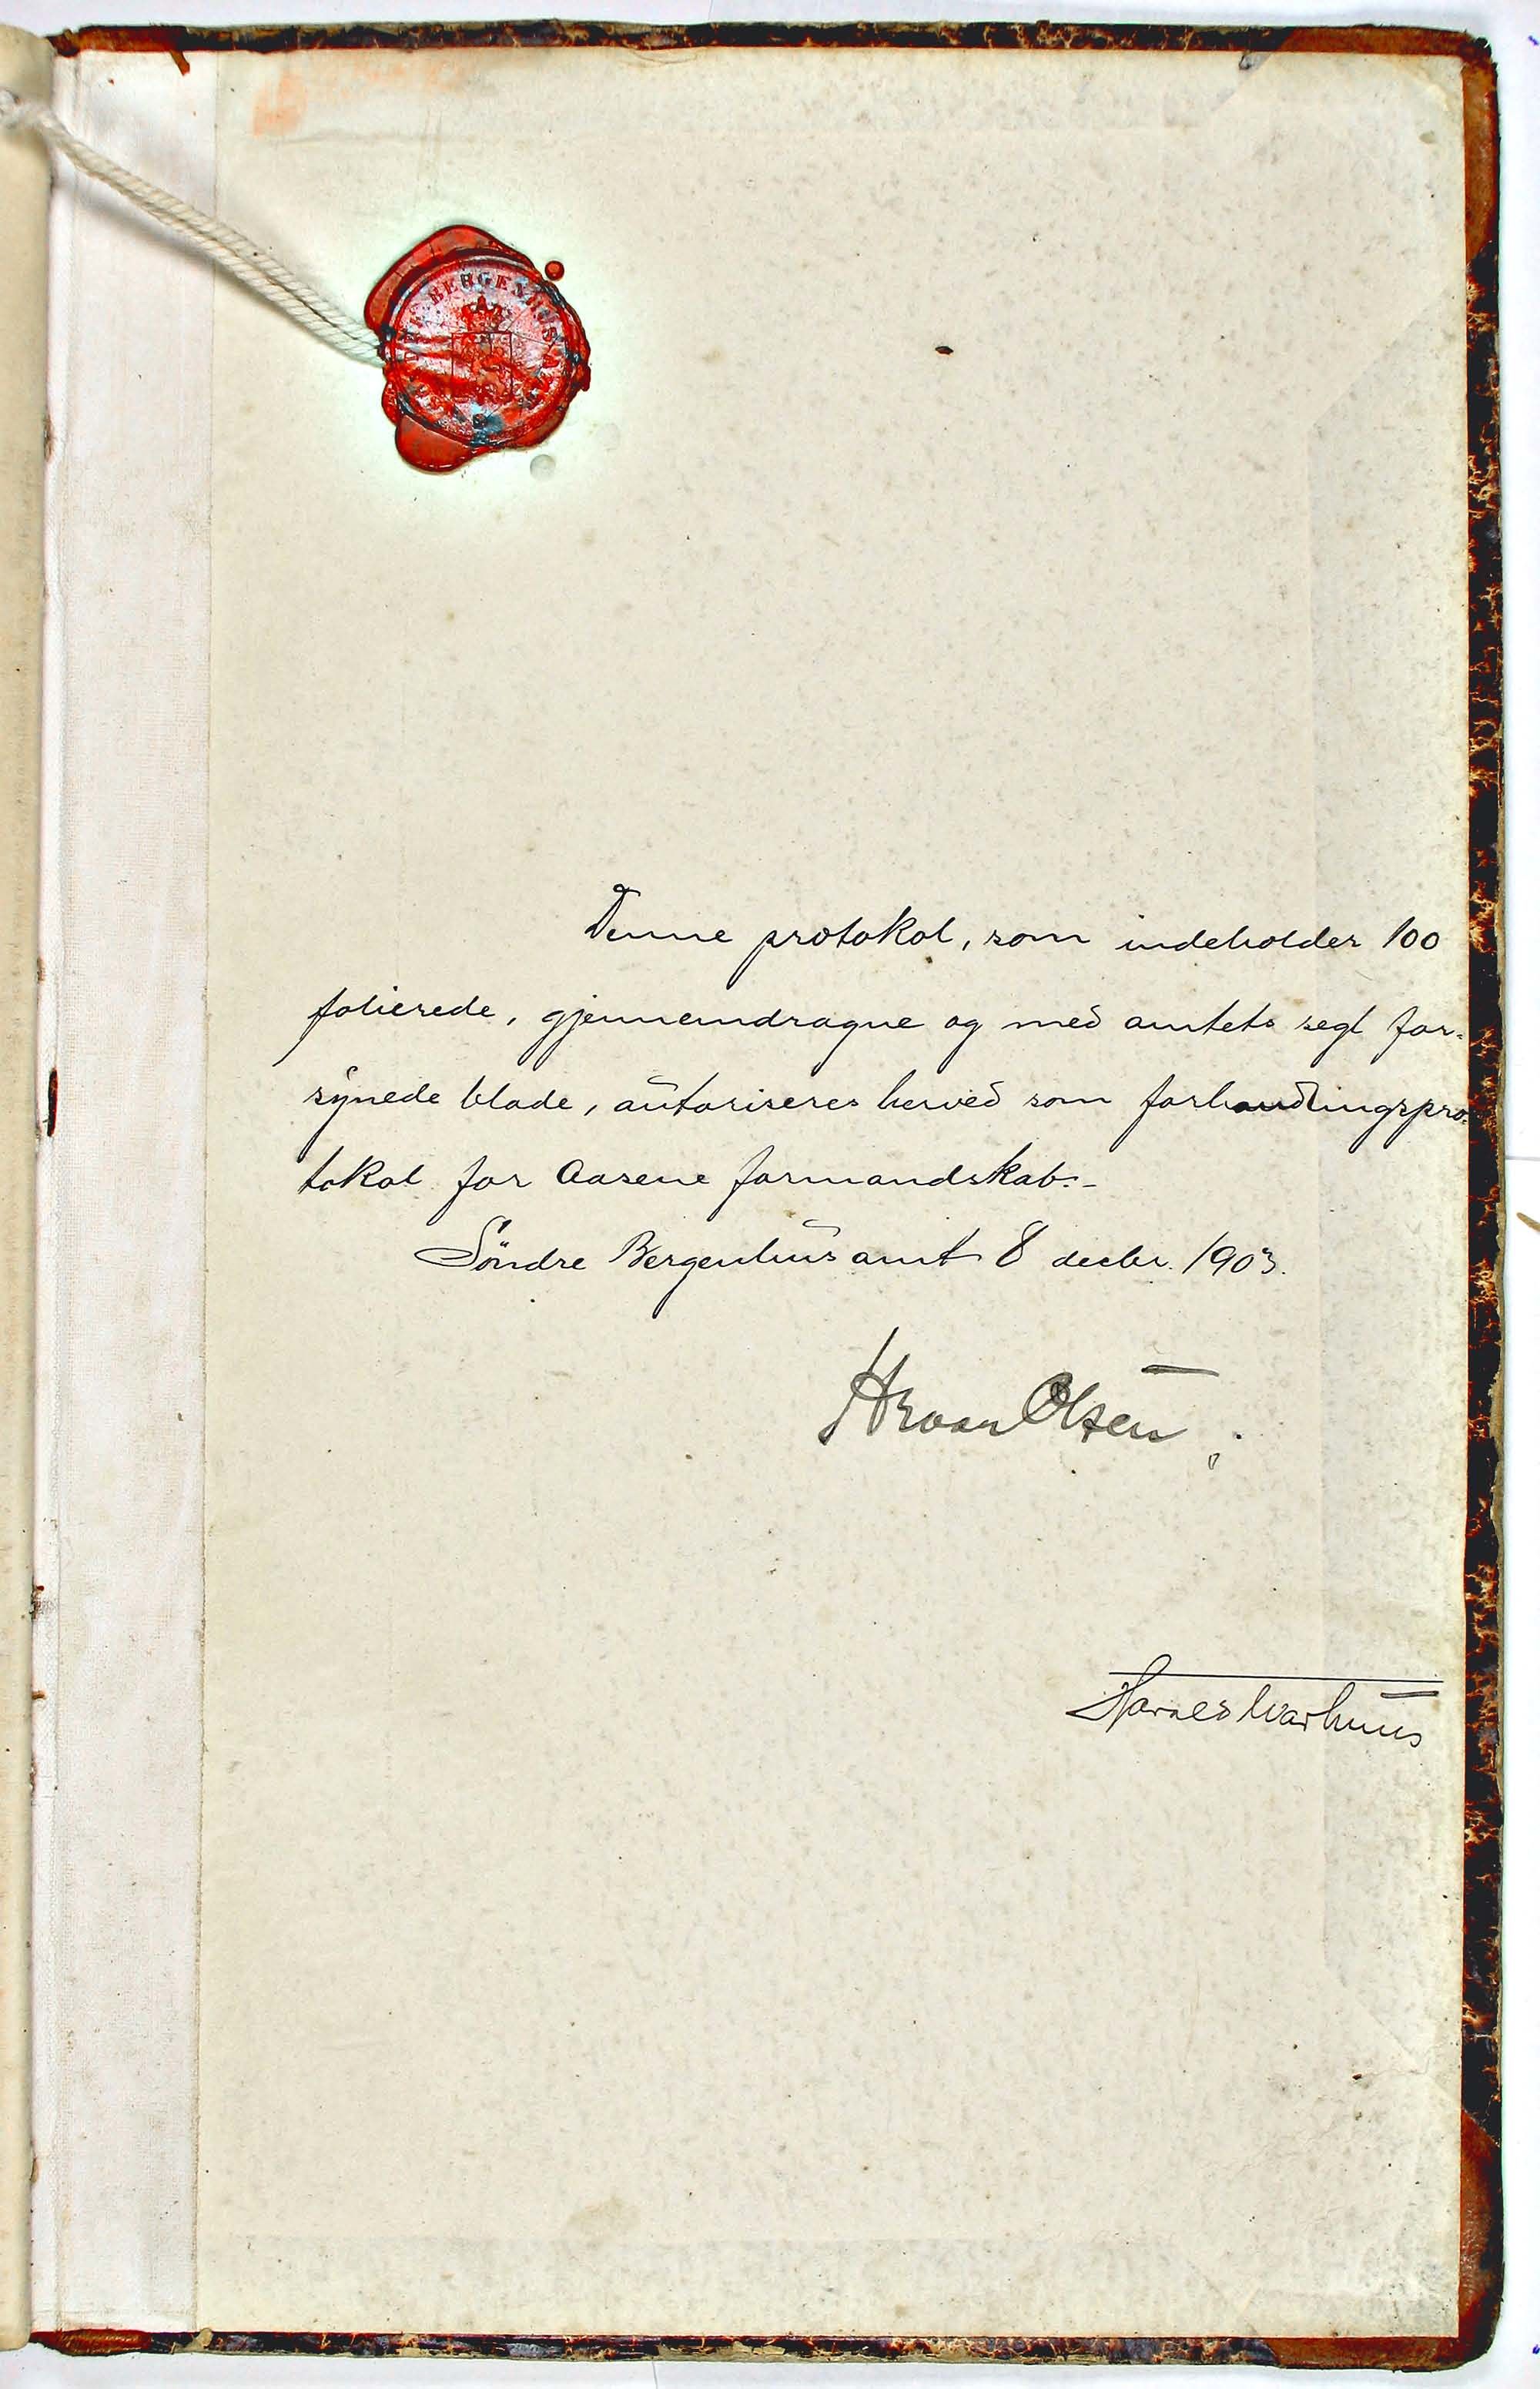 BERGENHUS A
Denne protokol, som indeholder 100
folierede, gjennemdragne og med amtets segl for-
synede blade, autoriseres herved som forhandlingspro-
tokol for Aasene formandskab.-
Söndre Bergenhus amt 8 decbr. 1903.
Hroar Olsen